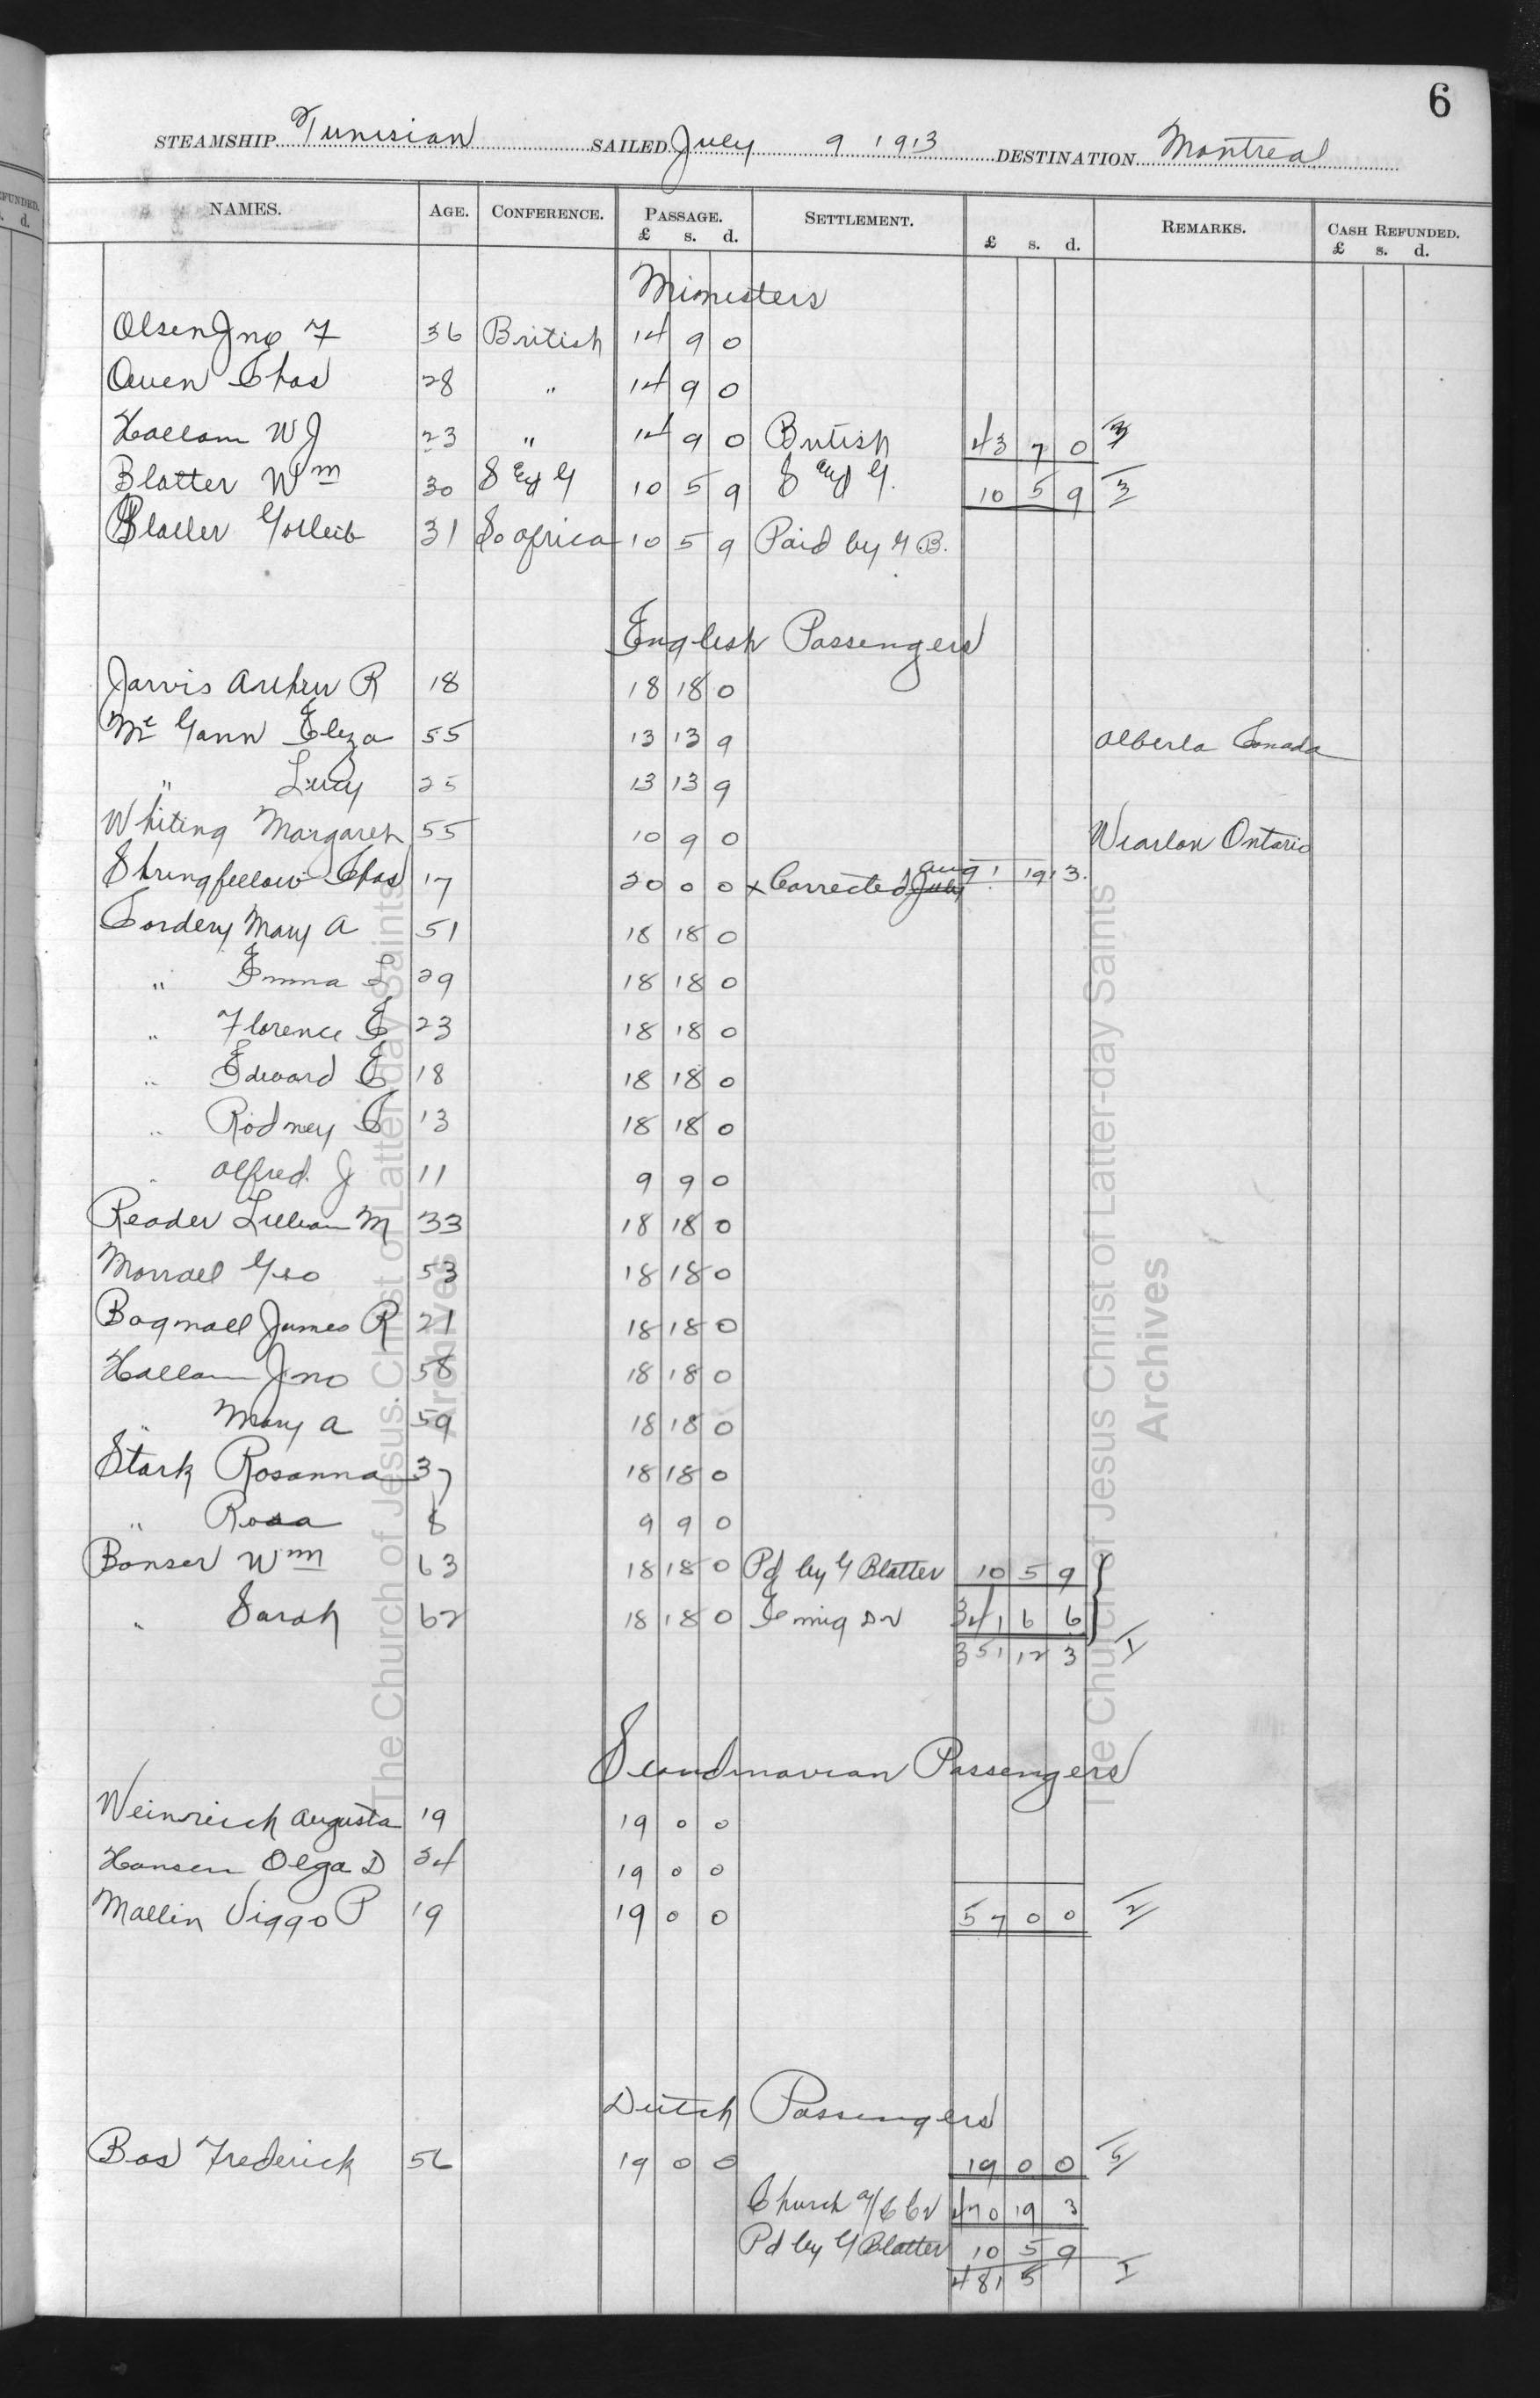 6
STEAMSHIP Tunisian SAILED July 9 1913 DESTINATION Montreal
NAMES. AGE. CONFERENCE. PASSAGE. SETTLEMENT. REMARKS. CASH REFUNDED.
£ s. d. £ s. d. £ s. d.
Ministers
Olsen Jno F 36 British 14 9 0
Owen Chas 28 " 14 9 0
Hallam W J 23 " 14 9 0 British 43 7 0
Blatter Wm 30 S & G 10 5 9 S & G. 10 5 9 3
Blatter Gotleib 31 So Africa 10 5 9 Paid by G B.
English Passengers
Jarvis Arthur R 18 18 18 0
Mc Gann Eliza 55 13 13 9 Alberta Canada
" Lucy 25 13 13 9
Whiting Margaret 55 10 9 0 Wiarton Ontario
Stringfellow Chas 17 20 0 0 x Corrected July Aug 1 1913.
Cordery Mary A 51 18 18 0
" Emma L 29 18 18 0
" Florence E 23 18 18 0
" Edward E 18 18 18 0
" Rodney C 13 18 18 0
" Alfred. J 11 9 9 0
Reader Lillian M 33 18 18 0
Morrall Geo 53 18 18 0
Bagnall James R 21 18 18 0
Hallam Jno 58 18 18 0
" Mary A 59 18 18 0
Stark Rosanna 37 18 18 0
" Rosa 8 9 9 0
Bonser Wm 63 18 18 0 Pd by G Blatter 10 5 9
" Sarah 62 18 18 0 Emig Dr 341 6 6
351 12 3 1
Scandinavian Passengers
Weinreich Augusta 19 19 0 0
Hansen Olga D 34 19 0 0
Mallin Viggo P 19 19 0 0 57 0 0 2
Dutch Passengers
Bos Frederick 56 19 0 0 19 0 0 5
Church a/c Cr 470 19 3
Pd by G Blatter 10 5 9
481 5 1
The Church of Jesus Christ of Latter-day Saints
Archives
The Church of Jesus Christ of Latter-day Saints
Archives